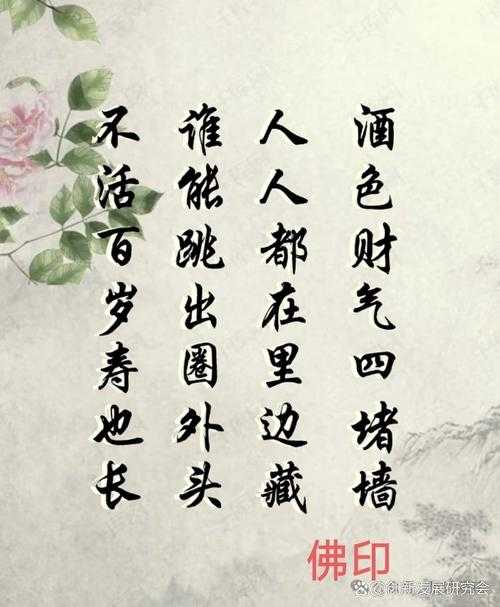 酒色财气四堵墙
人人都在里边藏
谁能跳出圈外头
不活百岁寿也长
佛印
发展研究会